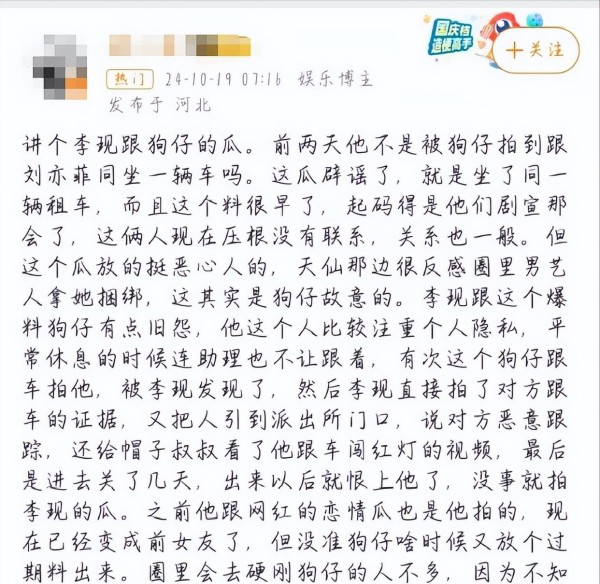 国庆档
造梗高手
+关注
热门 24-10-19 07:16 娱乐博主
发布于 河北
讲个李现跟狗仔的瓜。前两天他不是被狗仔拍到跟
刘亦菲同坐一辆车吗。这瓜辟谣了，就是坐了同一
辆租车，而且这个料很早了，起码得是他们剧宣那
会了，这俩人现在压根没有联系，关系也一般。但
这个瓜放的挺恶心人的，天仙那边很反感圈里男艺
人拿她捆绑，这其实是狗仔故意的。李现跟这个爆
料狗仔有点旧怨，他这个人比较注重个人隐私，平
常休息的时候连助理也不让跟着，有次这个狗仔跟
车拍他，被李现发现了，然后李现直接拍了对方跟
车的证据，又把人引到派出所门口，说对方恶意跟
踪，还给帽子叔叔看了他跟车闯红灯的视频，最后
是进去关了几天，出来以后就恨上他了，没事就拍
李现的瓜。之前他跟网红的恋情瓜也是他拍的，现
在已经变成前女友了，但没准狗仔啥时候又放个过
期料出来。圈里会去硬刚狗仔的人不多，因为不知